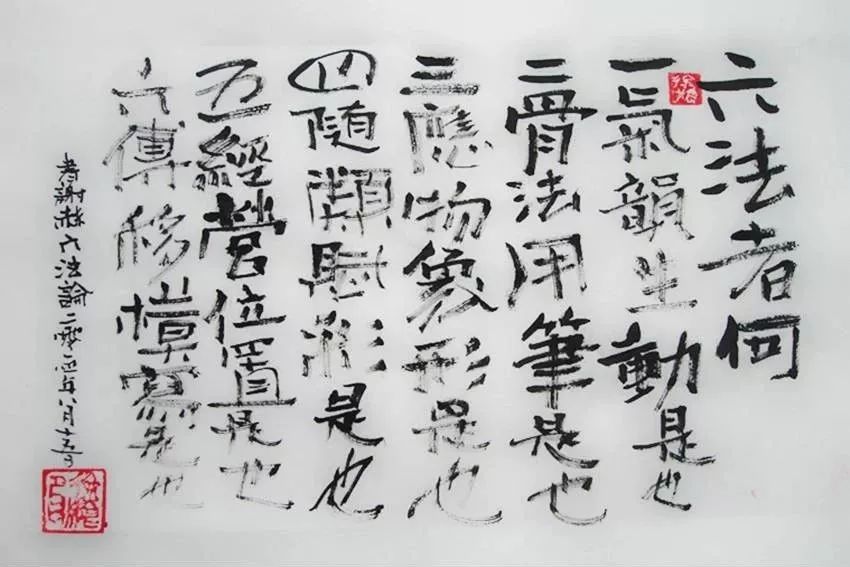 六法者何
一氣韻生動是也
二骨法用筆是也
三應物象形是也
四隨類賦彩是也
五經營位置是也
六傳移模寫是也
書謝赫六法論二零一四年八月十五